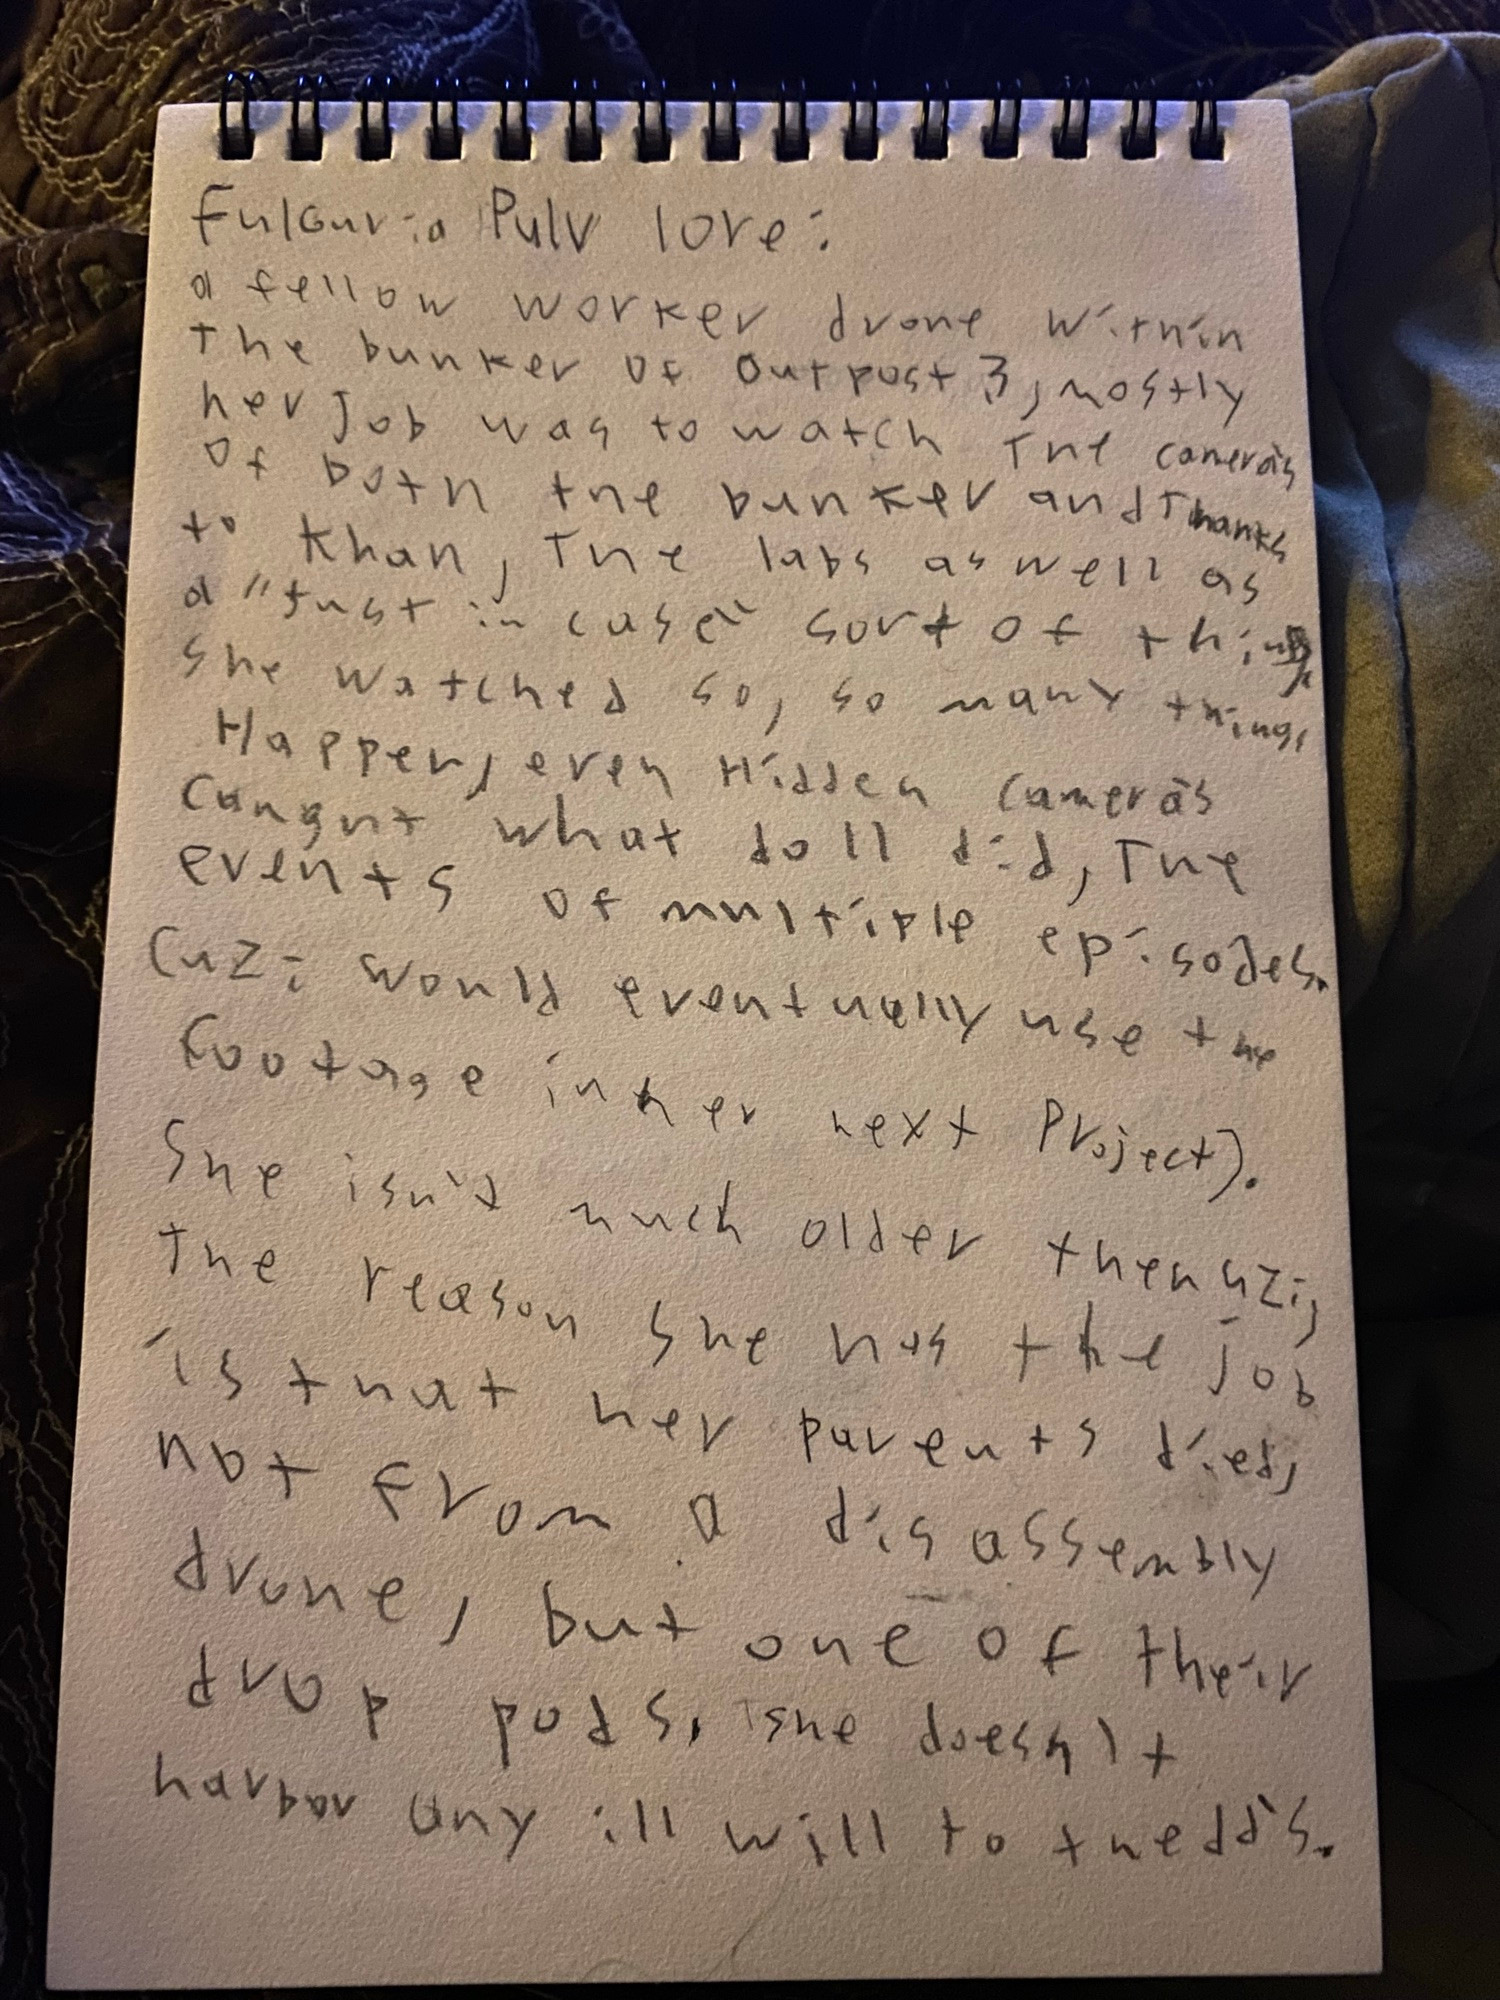 Fulguria Pulv lore:
a fellow worker drone within
the bunker of outpost 3, mostly
her job was to watch The camera's
of both the bunker and Thanks
to Khan, The labs as well as
a "just in case" sort of thing,
she watched so, so many things
Happen, even Hidden camera's
caught what doll did, The
events of multiple episodes.
(uzi would eventually use the
footage in her next Project).
She isn't much older then uzi,
The reason she has the job
is that her parents died,
not from a disassembly
drone, but one of their
drop pods, she doesn't
harbor any ill will to the dd's.